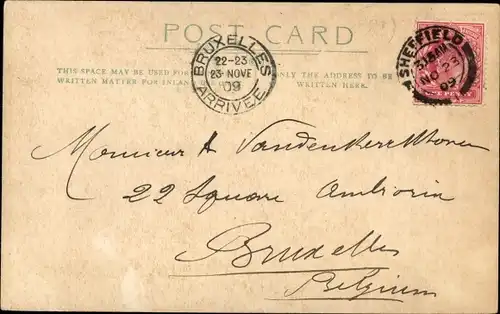 POST CARD
THIS SPACE MAY BE USED FOR
WRITTEN MATTER FOR INLAND
ONLY THE ADDRESS TO BE
WRITTEN HERE.
BRUXELLES
22-23
23 NOVE
09
ARRIVEE
SHEFFIELD
NO 23
09
Monsieur A Vandenkerckhove
22 Square Ambiorix
Bruxelles
Belgium